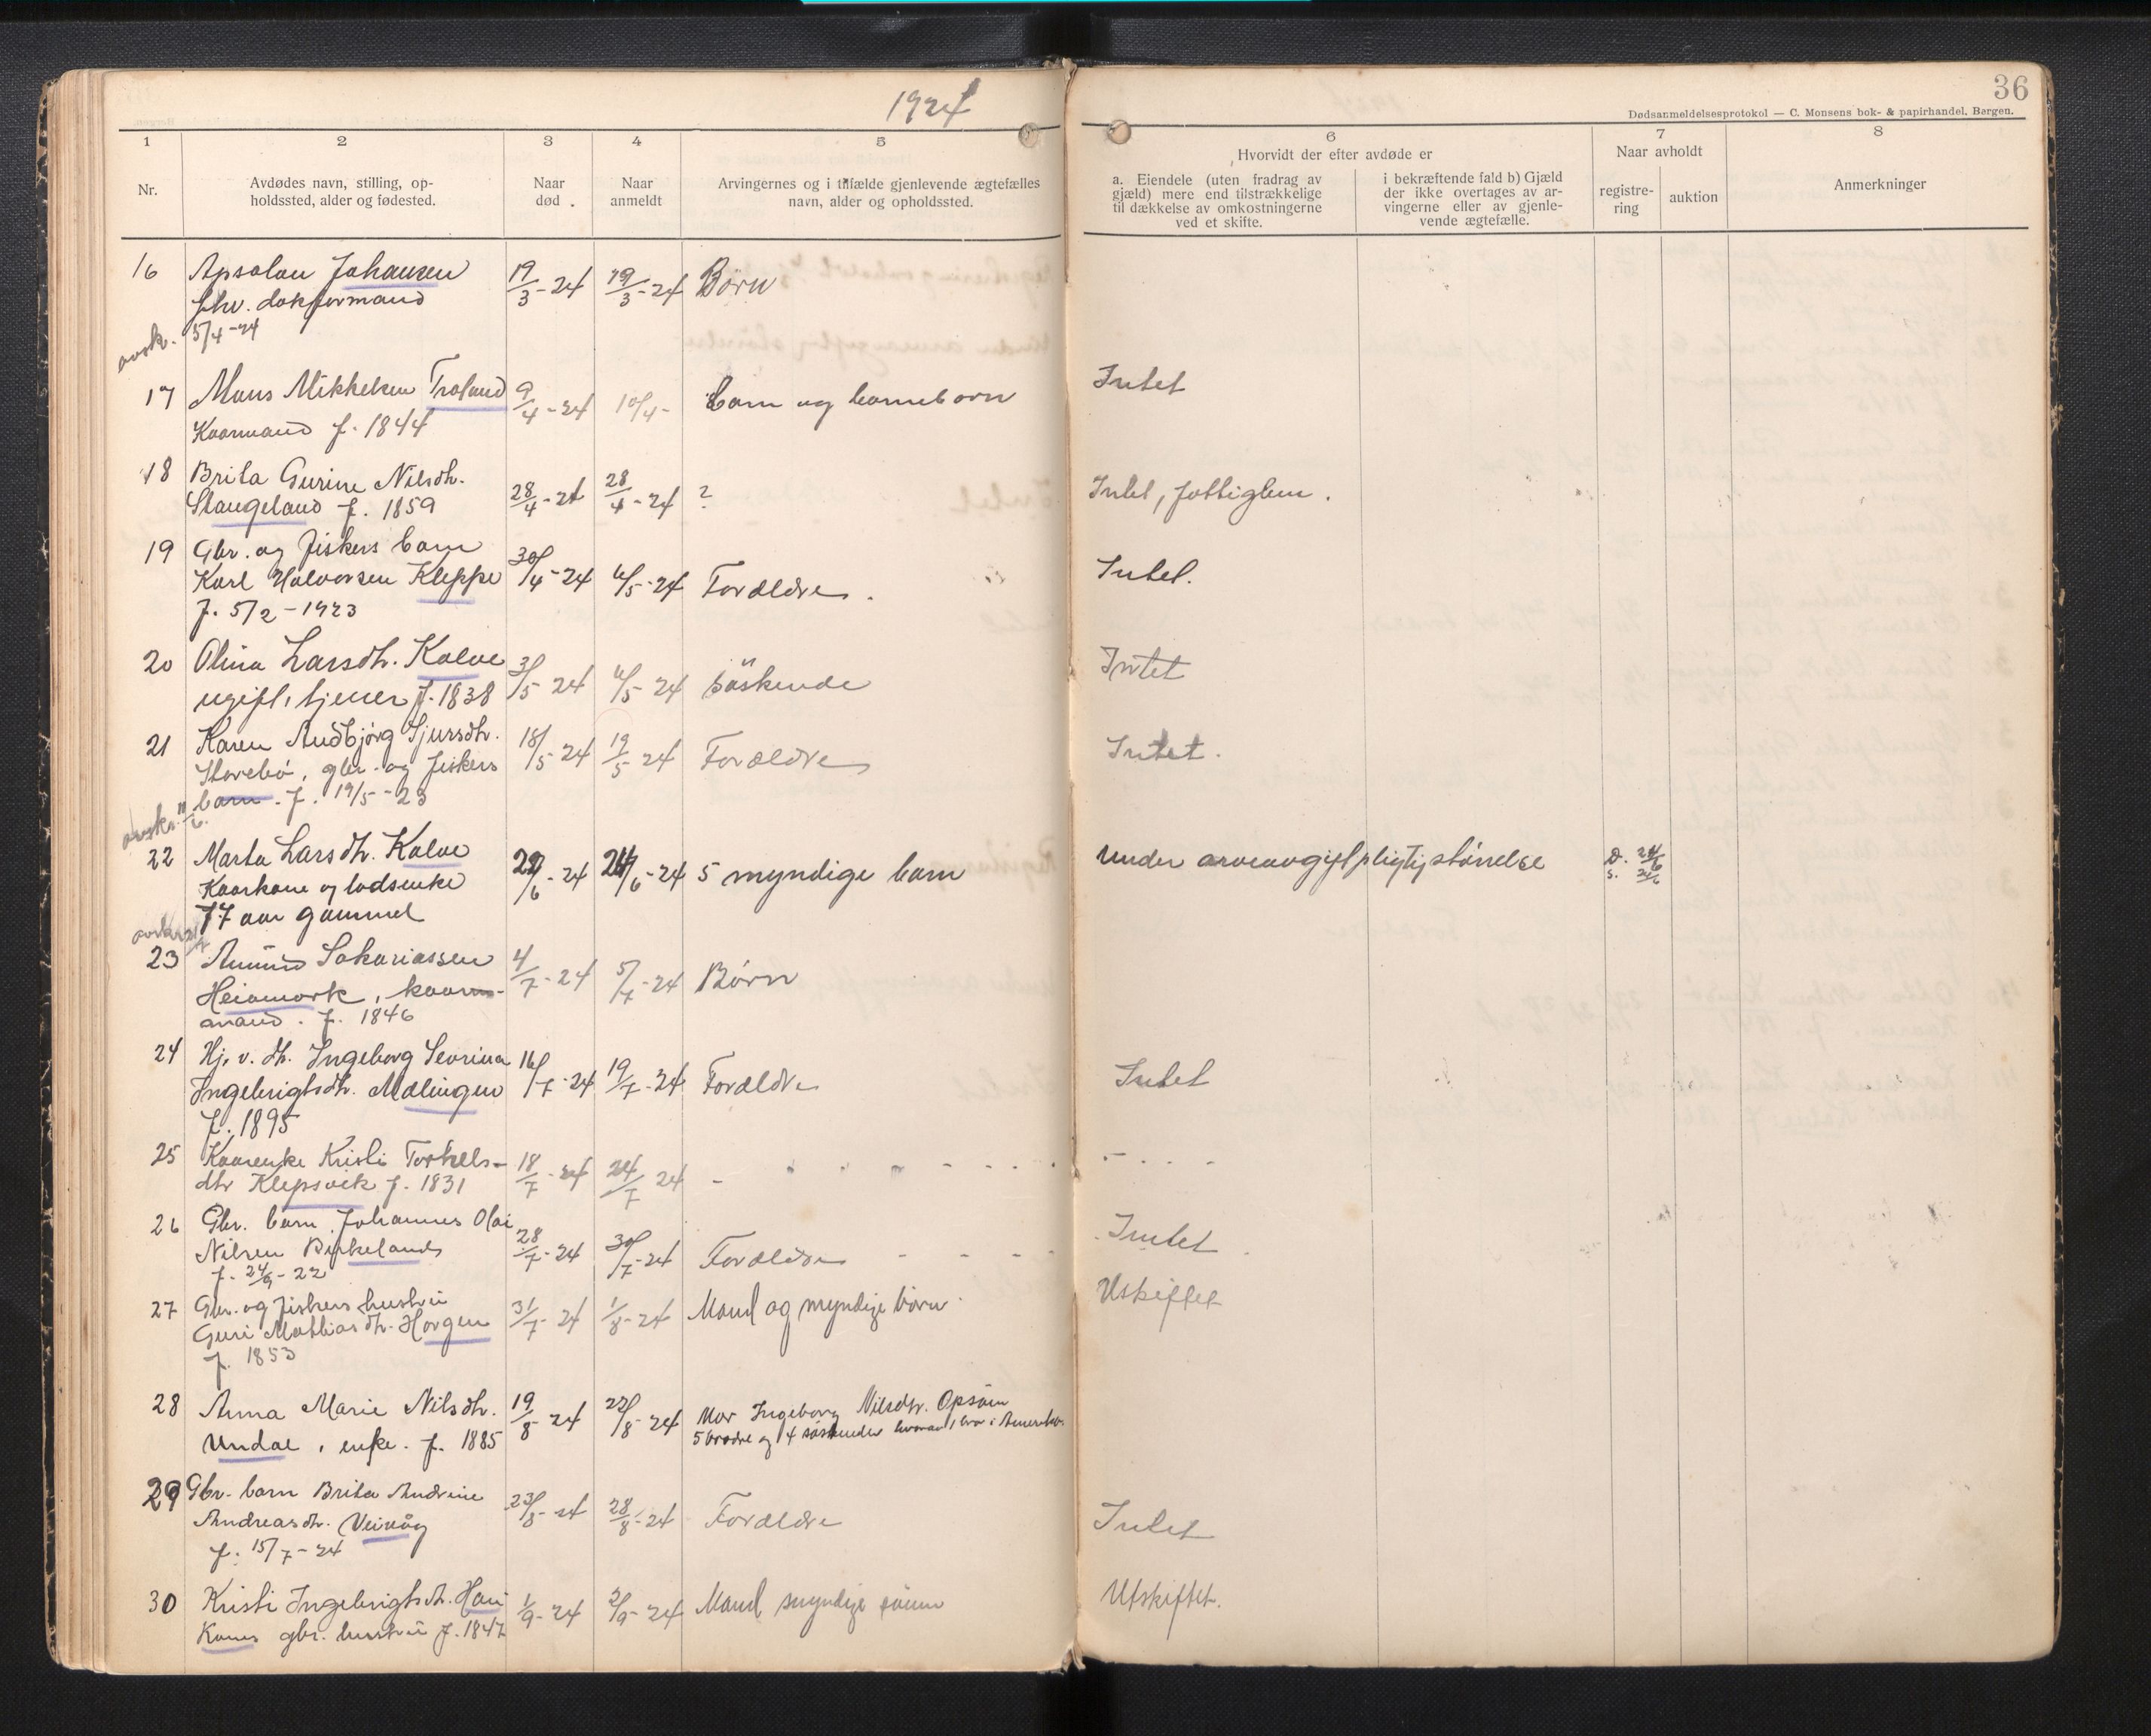 1924
36
Dødsanmeldelsesprotokol — C. Monsens bok- & papirhandel, Bergen.
1 2 3 4 5 6 7 8
Nr.
Avdødes navn, stilling, op-
holdssted, alder og fødested.
Naar
død.
Naar
anmeldt
Arvingernes og i tilfælde gjenlevende ægtefælles
navn, alder og opholdssted.
Hvorvidt der efter avdøde er
a. Eiendele (uten fradrag av
gjæld) mere end tilstrækkelige
til dækkelse av omkostningerne
ved et skifte.
i bekræftende fald b) Gjæld
der ikke overtages av ar-
vingerne eller av gjenle-
vende ægtefælle.
Naar avholdt
registre-
ring
auktion
Anmerkninger
16 Apsolon Johansen 19/3-24 19/3-24 Börn
fhv. dokformand
avsk. 5/4-24
17 Mons Mikkelsen Troland 9/4-24 10/4- barn og barnebarn Intet
Kaarmand f. 1844
18 Brita Gurine Nilsdtr. 28/4-24 28/4-24 ? Intet, fattiglem.
Stangeland f. 1859
19 Gbr. og fiskers barn
Karl Halvorsen Kleppe 30/4-24 6/5-24 Forældre. Intet.
f. 5/2-1923
20 Olina Larsdtr. Kalve 3/5 24 6/5-24 söskende Intet
ugift, tjener f. 1838
21 Karen Andbjørg Sjursdtr. 18/5-24 19/5 24 Forældre Intet.
Storebö, gbr. og fiskers
barn. f. 19/5-23
avsk. 11/6.
22 Marta Larsdtr. Kalve 22/6-24 24/6-24 5 myndige barn under arveavgiftpligtig störrelse D. 24/6
Kaarkone og lodsenke S. 24/6
77 aar gammel
23 Amund Sakariassen 4/7-24 5/7-24 Börn
Heiamork, kaar-
mand. f. 1846
24 Hj. v. dtr. Ingeborg Sevrina 16/7-24 19/7-24 Forældre Intet
Ingebrigtsdtr. Mælingen
f. 1895
25 Kaarenke Kristi Torkels- 18/7-24 24/7 24 - - - - -
dtr Klepsvik f. 1831
26 Gbr. barn Johannes Olai
Nilsen Birkeland 28/7-24 30/7-24 Forældre - - - Intet
f. 24/9-22
27 Gbr. og fiskers hustru 31/7-24 1/8-24 Mand og myndige börn. Uskiftet
Guri Mathiasdtr. Horgen
f. 1853
28 Anna Marie Nilsdtr. 19/8 24 22/8-24 Mor Ingeborg Nilsdtr. Opsöm
Undal, enke. f. 1885 5 brödre og 4 söskende hvorav 1 bror i Amerika
29 Gbr. barn Brita Andrine
Andreasdtr. Veivåg 23/8-24 28/8-24 Forældre Intet
f. 15/7-24
30 Kristi Ingebrigtsdtr. Hau 1/9-24 2/9-24 Mand myndige sönner Utskiftet.
Kanes gbr. hustru f. 1847